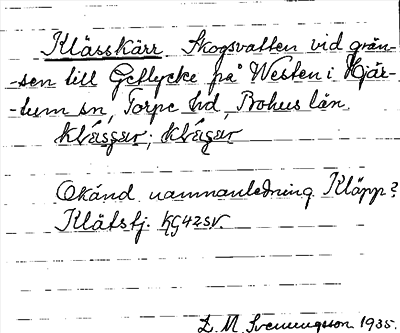 Klässkärr. Skogsvatten vid grän-
-sen till Geflycke på Westen i Hjär-
-tum sn, Torpe hd, Bohus län.
Okänd namnanledning. Kläpp?
Klätstj. KG42SV.
L. M. Svenungsson 1935.